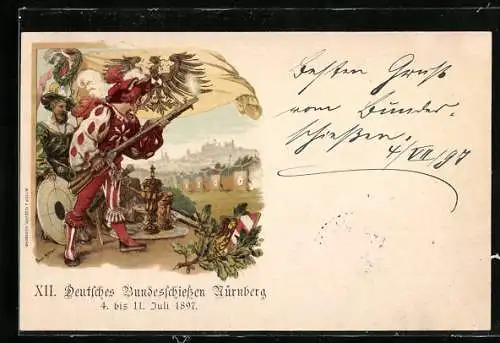 Besten Gruß
vom Bundes-
schießen.
4/VII 97
XII. Deutsches Bundesschießen Nürnberg
4. bis 11. Juli 1897.